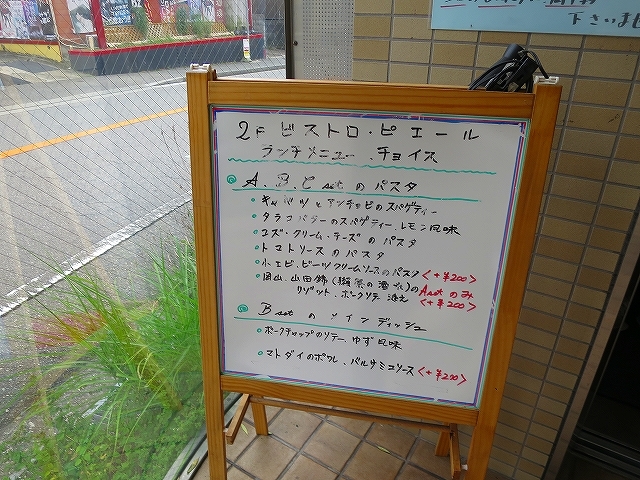 下さいませ
2F ビストロ・ピエール
ランチメニュー、チョイス
A、B、C set のパスタ
キャベツとアンチョビのスパゲティー
タラコバターのスパゲティー レモン風味
ユズ・クリーム・チーズのパスタ
トマトソースのパスタ
小エビ・ビーツクリームソースのパスタ <+¥200>
岡山、山田錦(獺祭の酒米)の A set のみ
リゾット、ポークソテー添え <+¥200>
B set のメインディッシュ
ポークチャップのソテー、ゆず風味
マトダイのポワレ、バルサミコソース <+¥200>